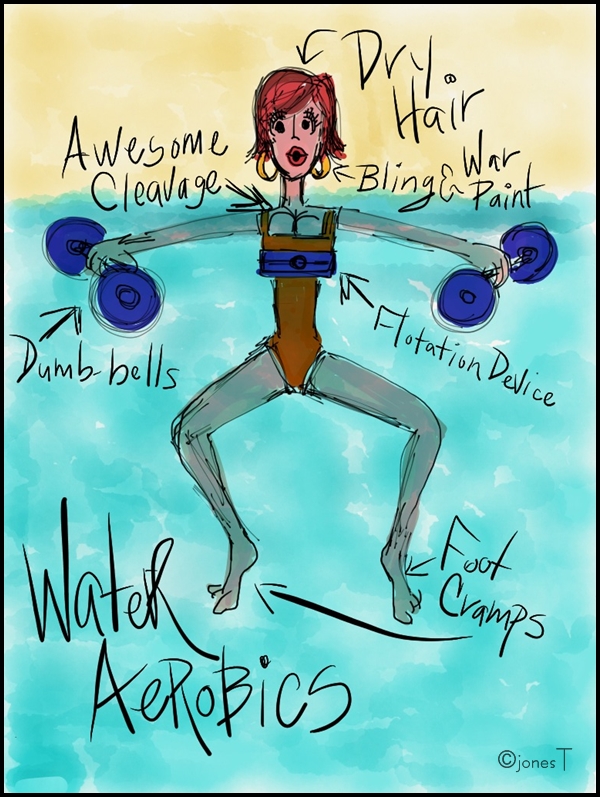 Dry
Hair
Awesome
Cleavage
Bling & War
Paint
Dumb-bells
Flotation Device
Foot
Cramps
Water
Aerobics
©jonesT